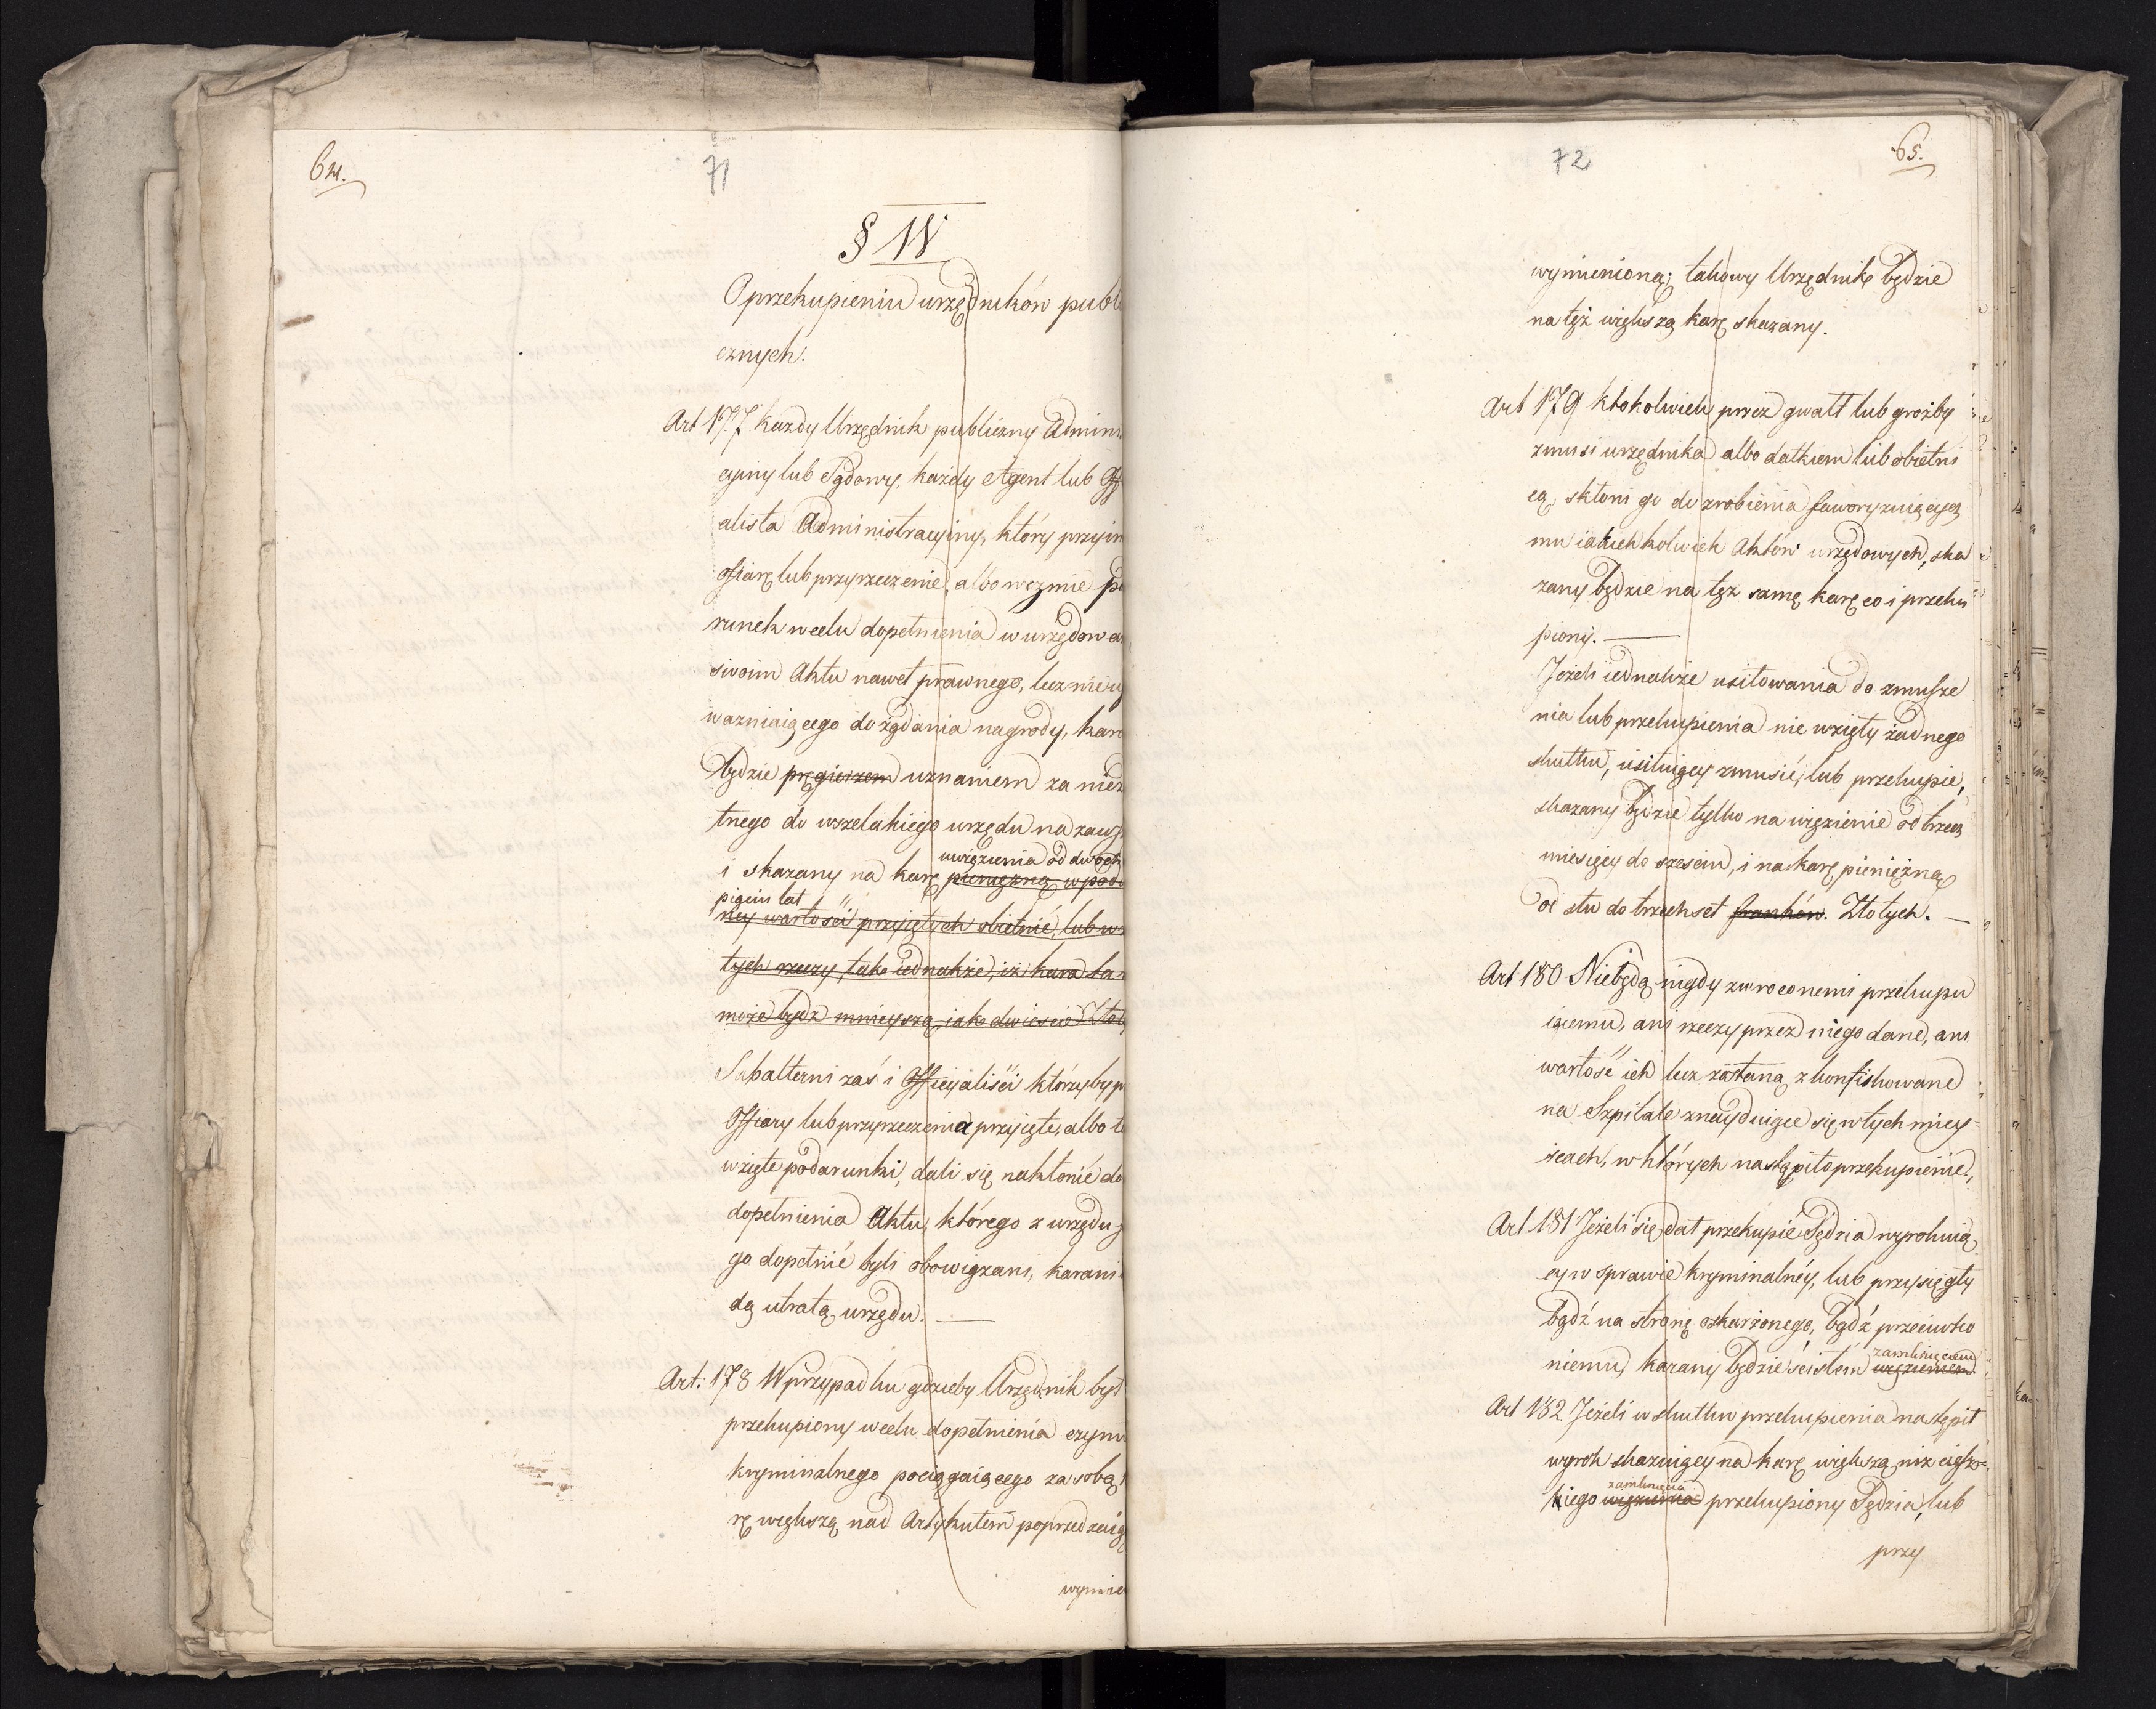 64.
71
§ IV
O przekupieniu urzędników publi
cznych.
Art 177 Każdy Urzędnik publiczny Admini
cyiny lub Sądowy, każdy Agent lub Offi
alista Administracyiny, który przyim
offiarę lub przyrzeczenie, albo wezmie po
runek w celu dopełnienia w urzędowan
swoim Aktu nawet prawnego, lecz nie u
ważniaiącego do żądania nagrody, karan
będzie pręgierzem uznaniem za niez
tnego do wszelakiego urzędu na zaws
uwięzienia od dwóch
i skazany na karę pieniężną w podw
pięciu lat
ney wartości przyiętych obietnic, lub w
tych rzeczy, tak iednakże, iż kara ta
może bydź mnieysza, iak dwieście Złot
Subalterni zaś i Officyaliści którzyby p
Offiary lub przyrzeczenia przyięte, albo te
wzięte podarunki, dali się nakłonić do
dopełnienia Aktu, którego z urzędu s
go dopełnić byli obowiązani, karani
dą utratą urzędu.
Art: 178 W przypadku gdzieby Urzędnik był
przekupiony w celu dopełnienia czynu
kryminalnego pociągaiącego za sobą
rę większą nad Artykułem poprzedzaią
wymie
72
65.
wymienioną; takowy Urzędnik będzie
na tęż większą karę skazany.
Art 179 Ktokolwiek przez gwałt lub groźby
zmusi urzędnika albo datkiem lub obietni
cą, skłoni go do zrobienia faworyzuiących
mu iakichkolwiek Aktów urzędowych, ska
zany będzie na tęż samę karę co i przeku
piony.
Jeżeli iednakże usiłowania do zmusze
nia lub przekupienia nie wzięły żadnego
skutku, usiłuiący zmusić, lub przekupić,
skazany będzie tylko na więzienie od trzech
miesięcy do sześciu, i na karę pieniężną
od stu do trzechset franków. Złotych.
Art 180 Niebędą nigdy zwroconemi przekupu
iącemu, ani rzeczy przez niego dane, ani
wartość ich lecz zostaną zkonfiskowane
na Szpitale znayduiące się w tych miey
scach, w których nastąpiło przekupienie,
Art 181 Jeżeli się dał przekupić Sędzia wyrokuią
cy w sprawie kryminalnéy, lub przysięgły
bądź na stronę oskarżonego, bądź przeciwko
zamknięciem
niemu, karany będzie ścisłem więzieniem
Art 182 Jeżeli w skutku przekupienia nastąpił
wyrok skazuiący na karę większą niż cięż
zamknięcia
kiego więzienia przekupiony Sędzia, lub
przy